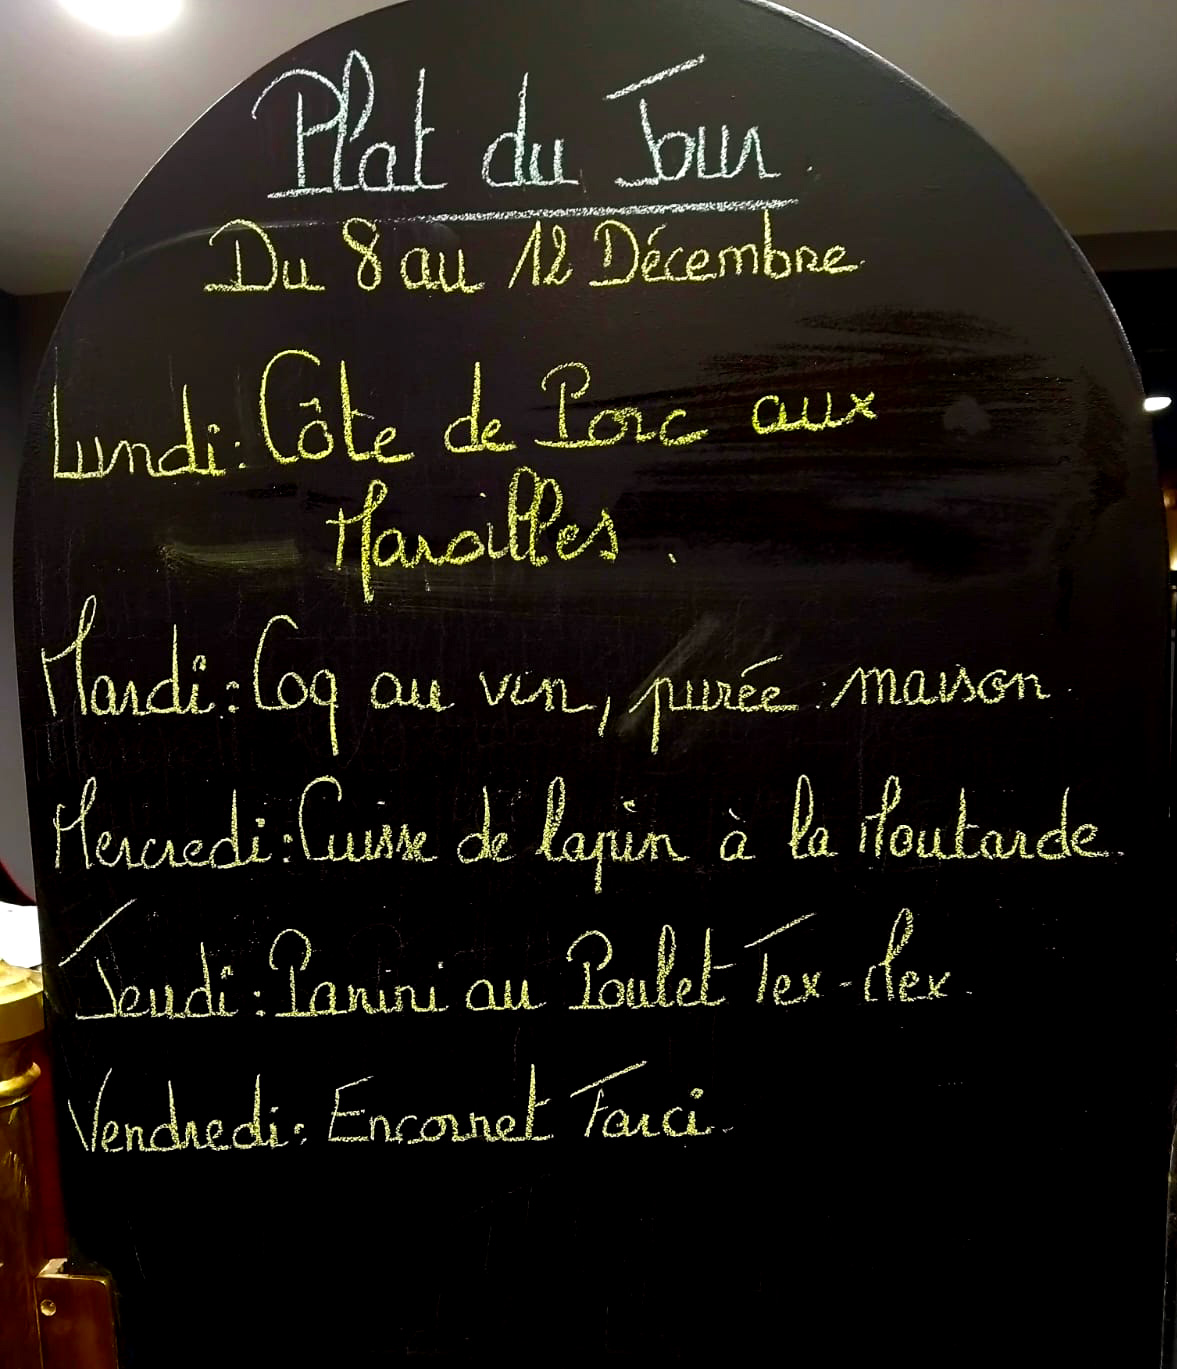 Plat du Jour.
Du 8 au 12 Décembre
Lundi: Côte de Porc aux
Maroilles.
Mardi: Coq au vin, purée maison
Mercredi: Cuisse de lapin à la Moutarde.
Jeudi: Panini au Poulet Tex-Mex.
Vendredi: Encornet Farci.